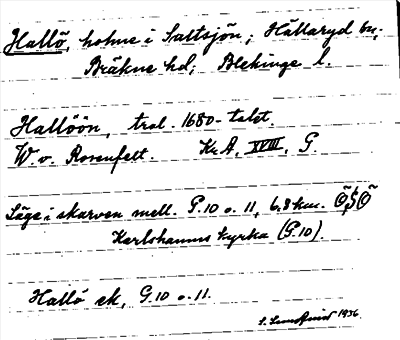 Hallö, holme i Saltsjön; Hällaryd sn;
Bräkne hd; Blekinge l.
Hallöön, trol. 1680-talet.
W. v. Rosenfelt. Kr.A, XVIII, G.
Läge i skarven mell. P.10 o. 11, 6.8 km. ÖSÖ
Karlshamns kyrka (G.10).
Hallö ek, G.10 o. 11.
S. Lundqvist 1936.